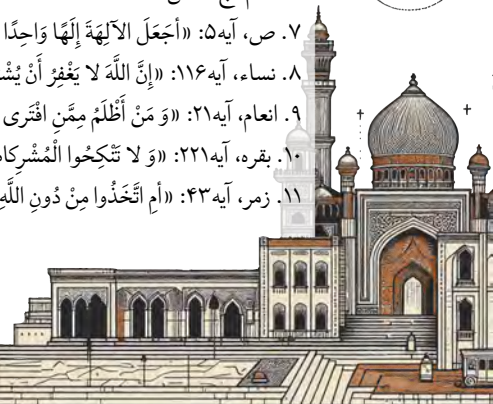 ۷. ص، آیه۵: «أَجَعَلَ الآلِهَةَ إِلَهًا وَاحِدًا
۸. نساء، آیه۱۱۶: «إِنَّ اللَّهَ لا يَغْفِرُ أَنْ يُشْ
۹. انعام، آیه۲۱: «وَ مَنْ أَظْلَمُ مِمَّنِ افْتَرى
۱۰. بقره، آیه۲۲۱: «وَ لا تَنْكِحُوا الْمُشْرِكا
۱۱. زمر، آیه۴۳: «أمِ اتَّخَذُوا مِنْ دُونِ اللَّهِ